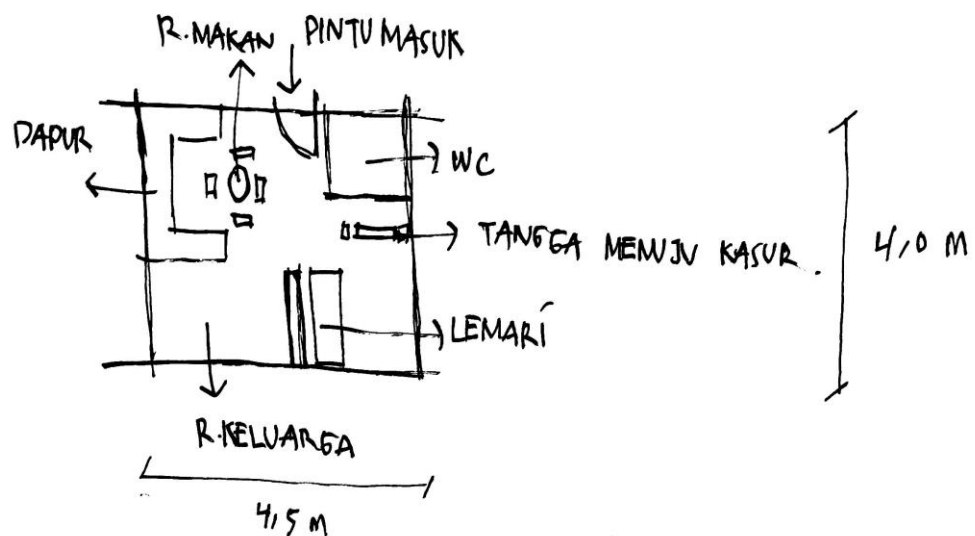 R.MAKAN
PINTU MASUK
DAPUR
WC
TANGGA MENUJU KASUR.
4,0 M
LEMARI
R.KELUARGA
4,5 M